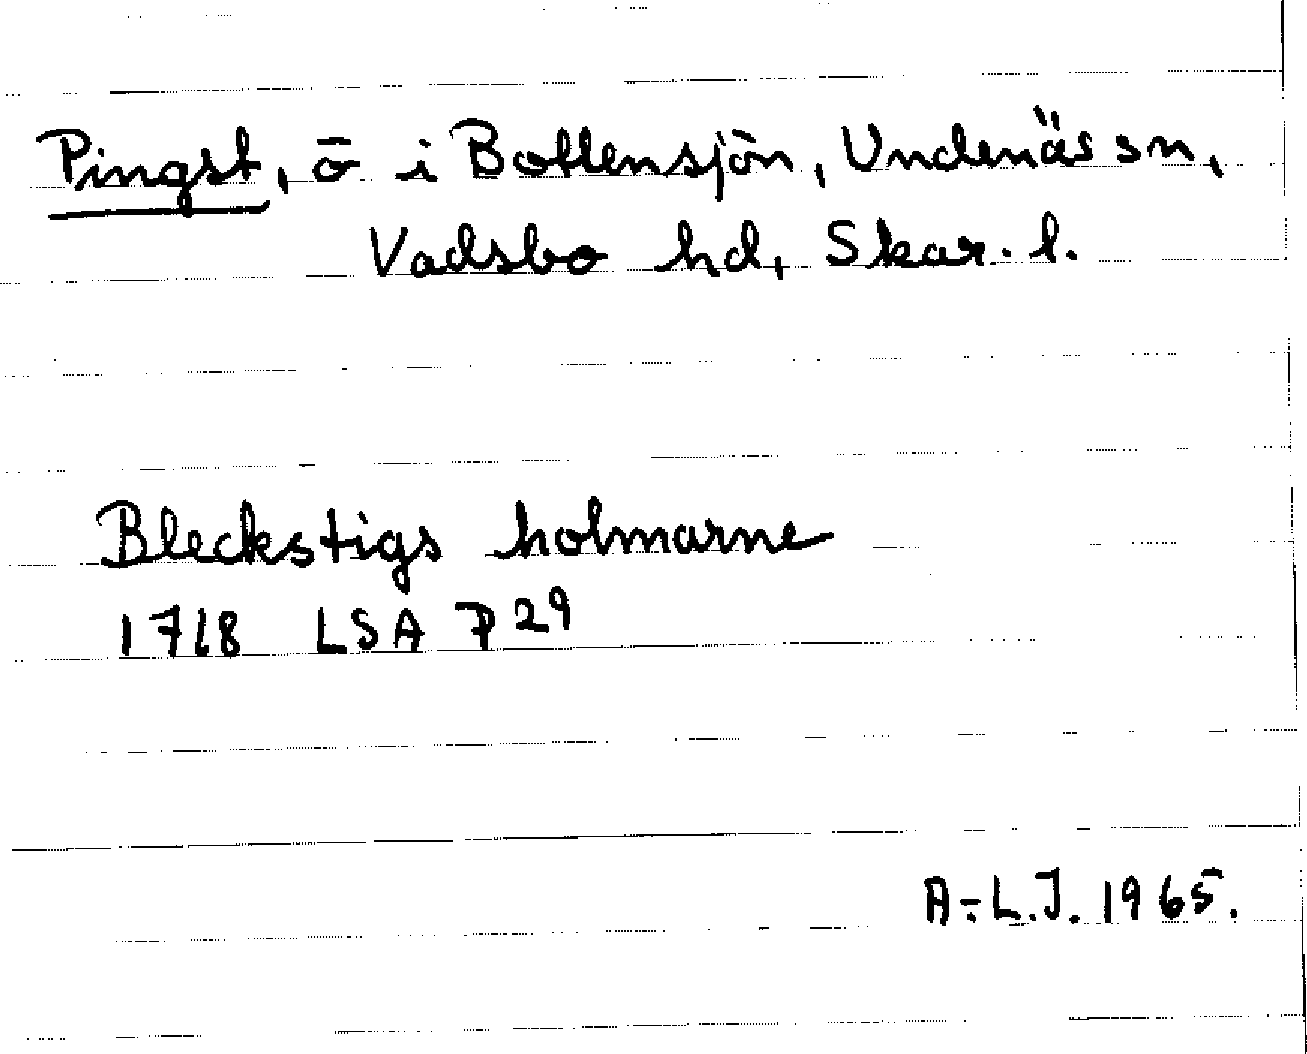 Pingst, ö i Bottensjön, Undenäs sn,
Vadsbo hd, Skar. l.
Bleckstigs holmarne
1718 LSA P 29
A-L.J. 1965.